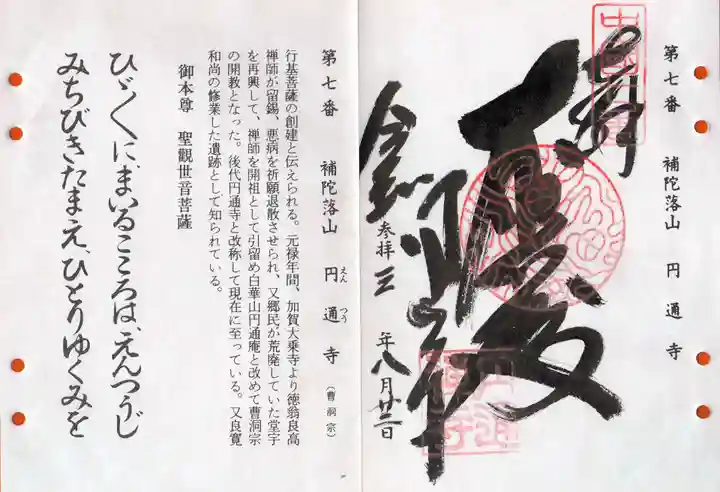 第七番 補陀落山 円通寺
奉拝
聖大悲
円通寺
参拝 三 年八月廿二日
第七番 補陀落山 円通寺 (曹洞宗)
えん つう
行基菩薩の創建と伝えられる。元禄年間、加賀大乗寺より徳翁良高
禅師が留錫、悪病を祈願退散させられ、又郷民が荒廃していた堂宇
を再興して、禅師を開祖として引留め白華山円通庵と改めて曹洞宗
の開教となった。後代円通寺と改称して現在に至っている。又良寛
和尚の修業した遺跡として知られている。
御本尊 聖觀世音菩薩
ひゞくに、まいるこころは、えんつうじ
みちびきたまえ、ひとりゆくみを